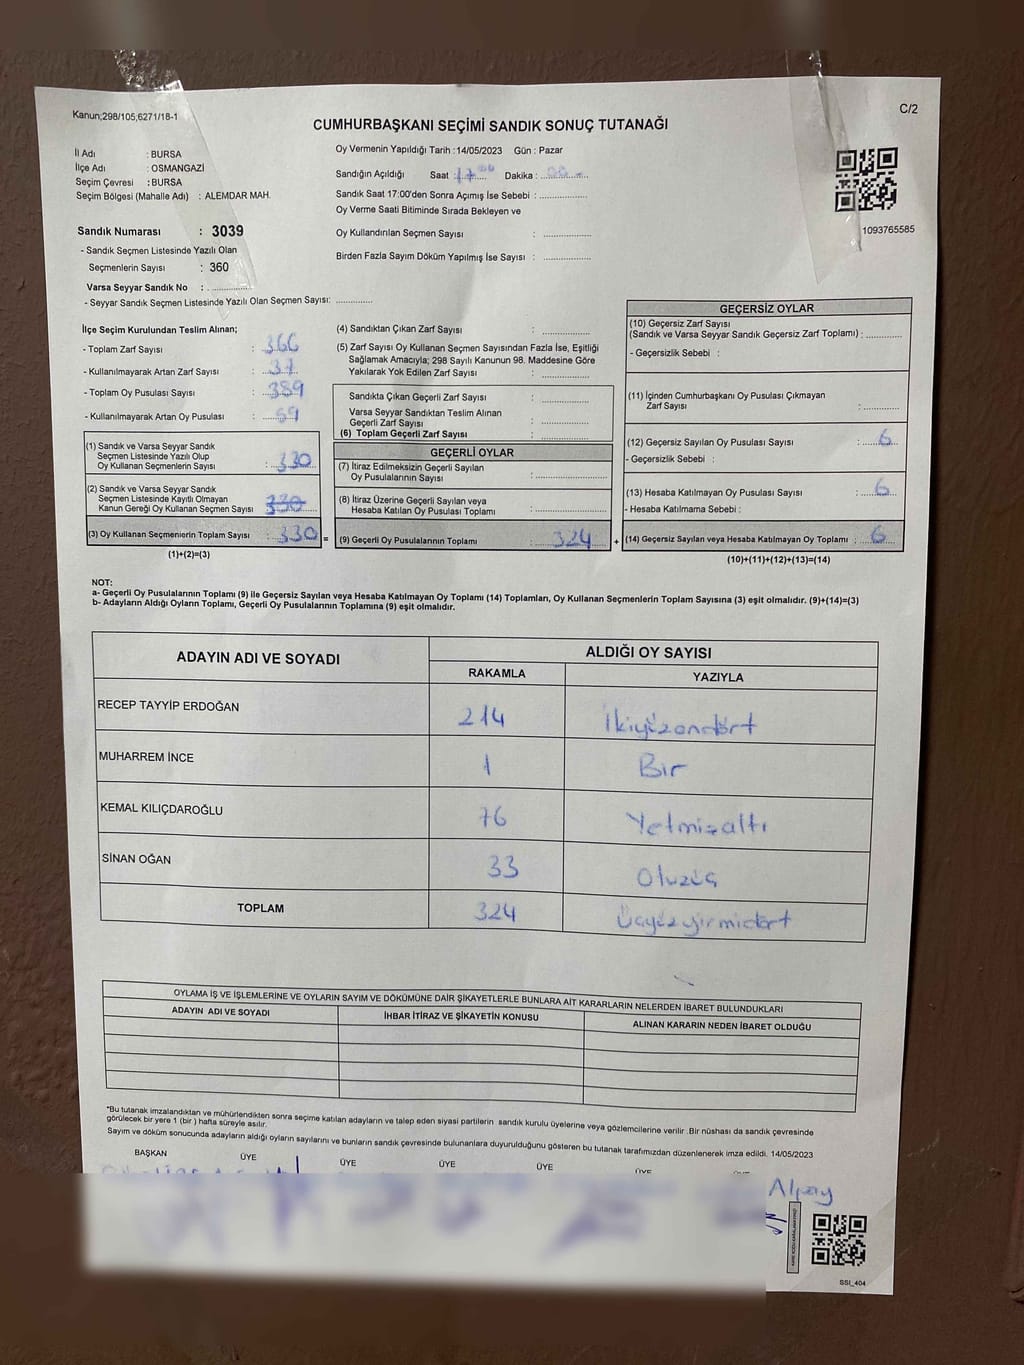 Kanun;298/105;6271/18-1
C/2
CUMHURBAŞKANI SEÇİMİ SANDIK SONUÇ TUTANAĞI
İl Adı : BURSA
İlçe Adı : OSMANGAZİ
Seçim Çevresi : BURSA
Seçim Bölgesi (Mahalle Adı) : ALEMDAR MAH.
Oy Vermenin Yapıldığı Tarih :14/05/2023 Gün : Pazar
Sandığın Açıldığı Saat : 17 00 Dakika : 00
Sandık Saat 17:00'den Sonra Açımış İse Sebebi :
Oy Verme Saati Bitiminde Sırada Bekleyen ve
Oy Kullandırılan Seçmen Sayısı :
Birden Fazla Sayım Döküm Yapılmış İse Sayısı :
1093765585
Sandık Numarası : 3039
- Sandık Seçmen Listesinde Yazılı Olan
Seçmenlerin Sayısı : 360
Varsa Seyyar Sandık No :
- Seyyar Sandık Seçmen Listesinde Yazılı Olan Seçmen Sayısı:
İlçe Seçim Kurulundan Teslim Alınan;
- Toplam Zarf Sayısı : 366
- Kullanılmayarak Artan Zarf Sayısı : 37
- Toplam Oy Pusulası Sayısı : 389
- Kullanılmayarak Artan Oy Pusulası : 59
(1) Sandık ve Varsa Seyyar Sandık
Seçmen Listesinde Yazılı Olup
Oy Kullanan Seçmenlerin Sayısı : 330
(2) Sandık ve Varsa Seyyar Sandık
Seçmen Listesinde Kayıtlı Olmayan
Kanun Gereği Oy Kullanan Seçmen Sayısı 330
(3) Oy Kullanan Seçmenlerin Toplam Sayısı : 330 =
(1)+(2)=(3)
(4) Sandıktan Çıkan Zarf Sayısı :
(5) Zarf Sayısı Oy Kullanan Seçmen Sayısından Fazla İse, Eşitliği
Sağlamak Amacıyla; 298 Sayılı Kanunun 98. Maddesine Göre
Yakılarak Yok Edilen Zarf Sayısı :
Sandıkta Çıkan Geçerli Zarf Sayısı :
Varsa Seyyar Sandıktan Teslim Alınan
Geçerli Zarf Sayısı :
(6) Toplam Geçerli Zarf Sayısı :
GEÇERLİ OYLAR
(7) İtiraz Edilmeksizin Geçerli Sayılan
Oy Pusulalarının Sayısı :
(8) İtiraz Üzerine Geçerli Sayılan veya
Hesaba Katılan Oy Pusulası Toplamı :
(9) Geçerli Oy Pusulalarının Toplamı : 324 +
GEÇERSİZ OYLAR
(10) Geçersiz Zarf Sayısı
(Sandık ve Varsa Seyyar Sandık Geçersiz Zarf Toplamı) :
- Geçersizlik Sebebi :
(11) İçinden Cumhurbaşkanı Oy Pusulası Çıkmayan
Zarf Sayısı :
(12) Geçersiz Sayılan Oy Pusulası Sayısı : 6
- Geçersizlik Sebebi :
(13) Hesaba Katılmayan Oy Pusulası Sayısı : 6
- Hesaba Katılmama Sebebi :
(14) Geçersiz Sayılan veya Hesaba Katılmayan Oy Toplamı : 6
(10)+(11)+(12)+(13)=(14)
NOT:
a- Geçerli Oy Pusulalarının Toplamı (9) ile Geçersiz Sayılan veya Hesaba Katılmayan Oy Toplamı (14) Toplamları, Oy Kullanan Seçmenlerin Toplam Sayısına (3) eşit olmalıdır. (9)+(14)=(3)
b- Adayların Aldığı Oyların Toplamı, Geçerli Oy Pusulalarının Toplamına (9) eşit olmalıdır.
ADAYIN ADI VE SOYADI ALDIĞI OY SAYISI
RAKAMLA YAZIYLA
RECEP TAYYİP ERDOĞAN 214 İkiyüzondört
MUHARREM İNCE 1 Bir
KEMAL KILIÇDAROĞLU 76 Yetmişaltı
SİNAN OĞAN 33 Otuzüç
TOPLAM 324 Üçyüzyirmidört
OYLAMA İŞ VE İŞLEMLERİNE VE OYLARIN SAYIM VE DÖKÜMÜNE DAİR ŞİKAYETLERLE BUNLARA AİT KARARLARIN NELERDEN İBARET BULUNDUKLARI
ADAYIN ADI VE SOYADI İHBAR İTİRAZ VE ŞİKAYETİN KONUSU ALINAN KARARIN NEDEN İBARET OLDUĞU
*Bu tutanak imzalandıktan ve mühürlendikten sonra seçime katılan adayların ve talep eden siyasi partilerin sandık kurulu üyelerine veya gözlemcilerine verilir .Bir nüshası da sandık çevresinde
görülecek bir yere 1 (bir ) hafta süreyle asılır.
Sayım ve döküm sonucunda adayların aldığı oyların sayılarını ve bunların sandık çevresinde bulunanlara duyurulduğunu gösteren bu tutanak tarafımızdan düzenlenerek imza edildi. 14/05/2023
BAŞKAN ÜYE ÜYE ÜYE ÜYE ÜYE
Alpay
SSI_404